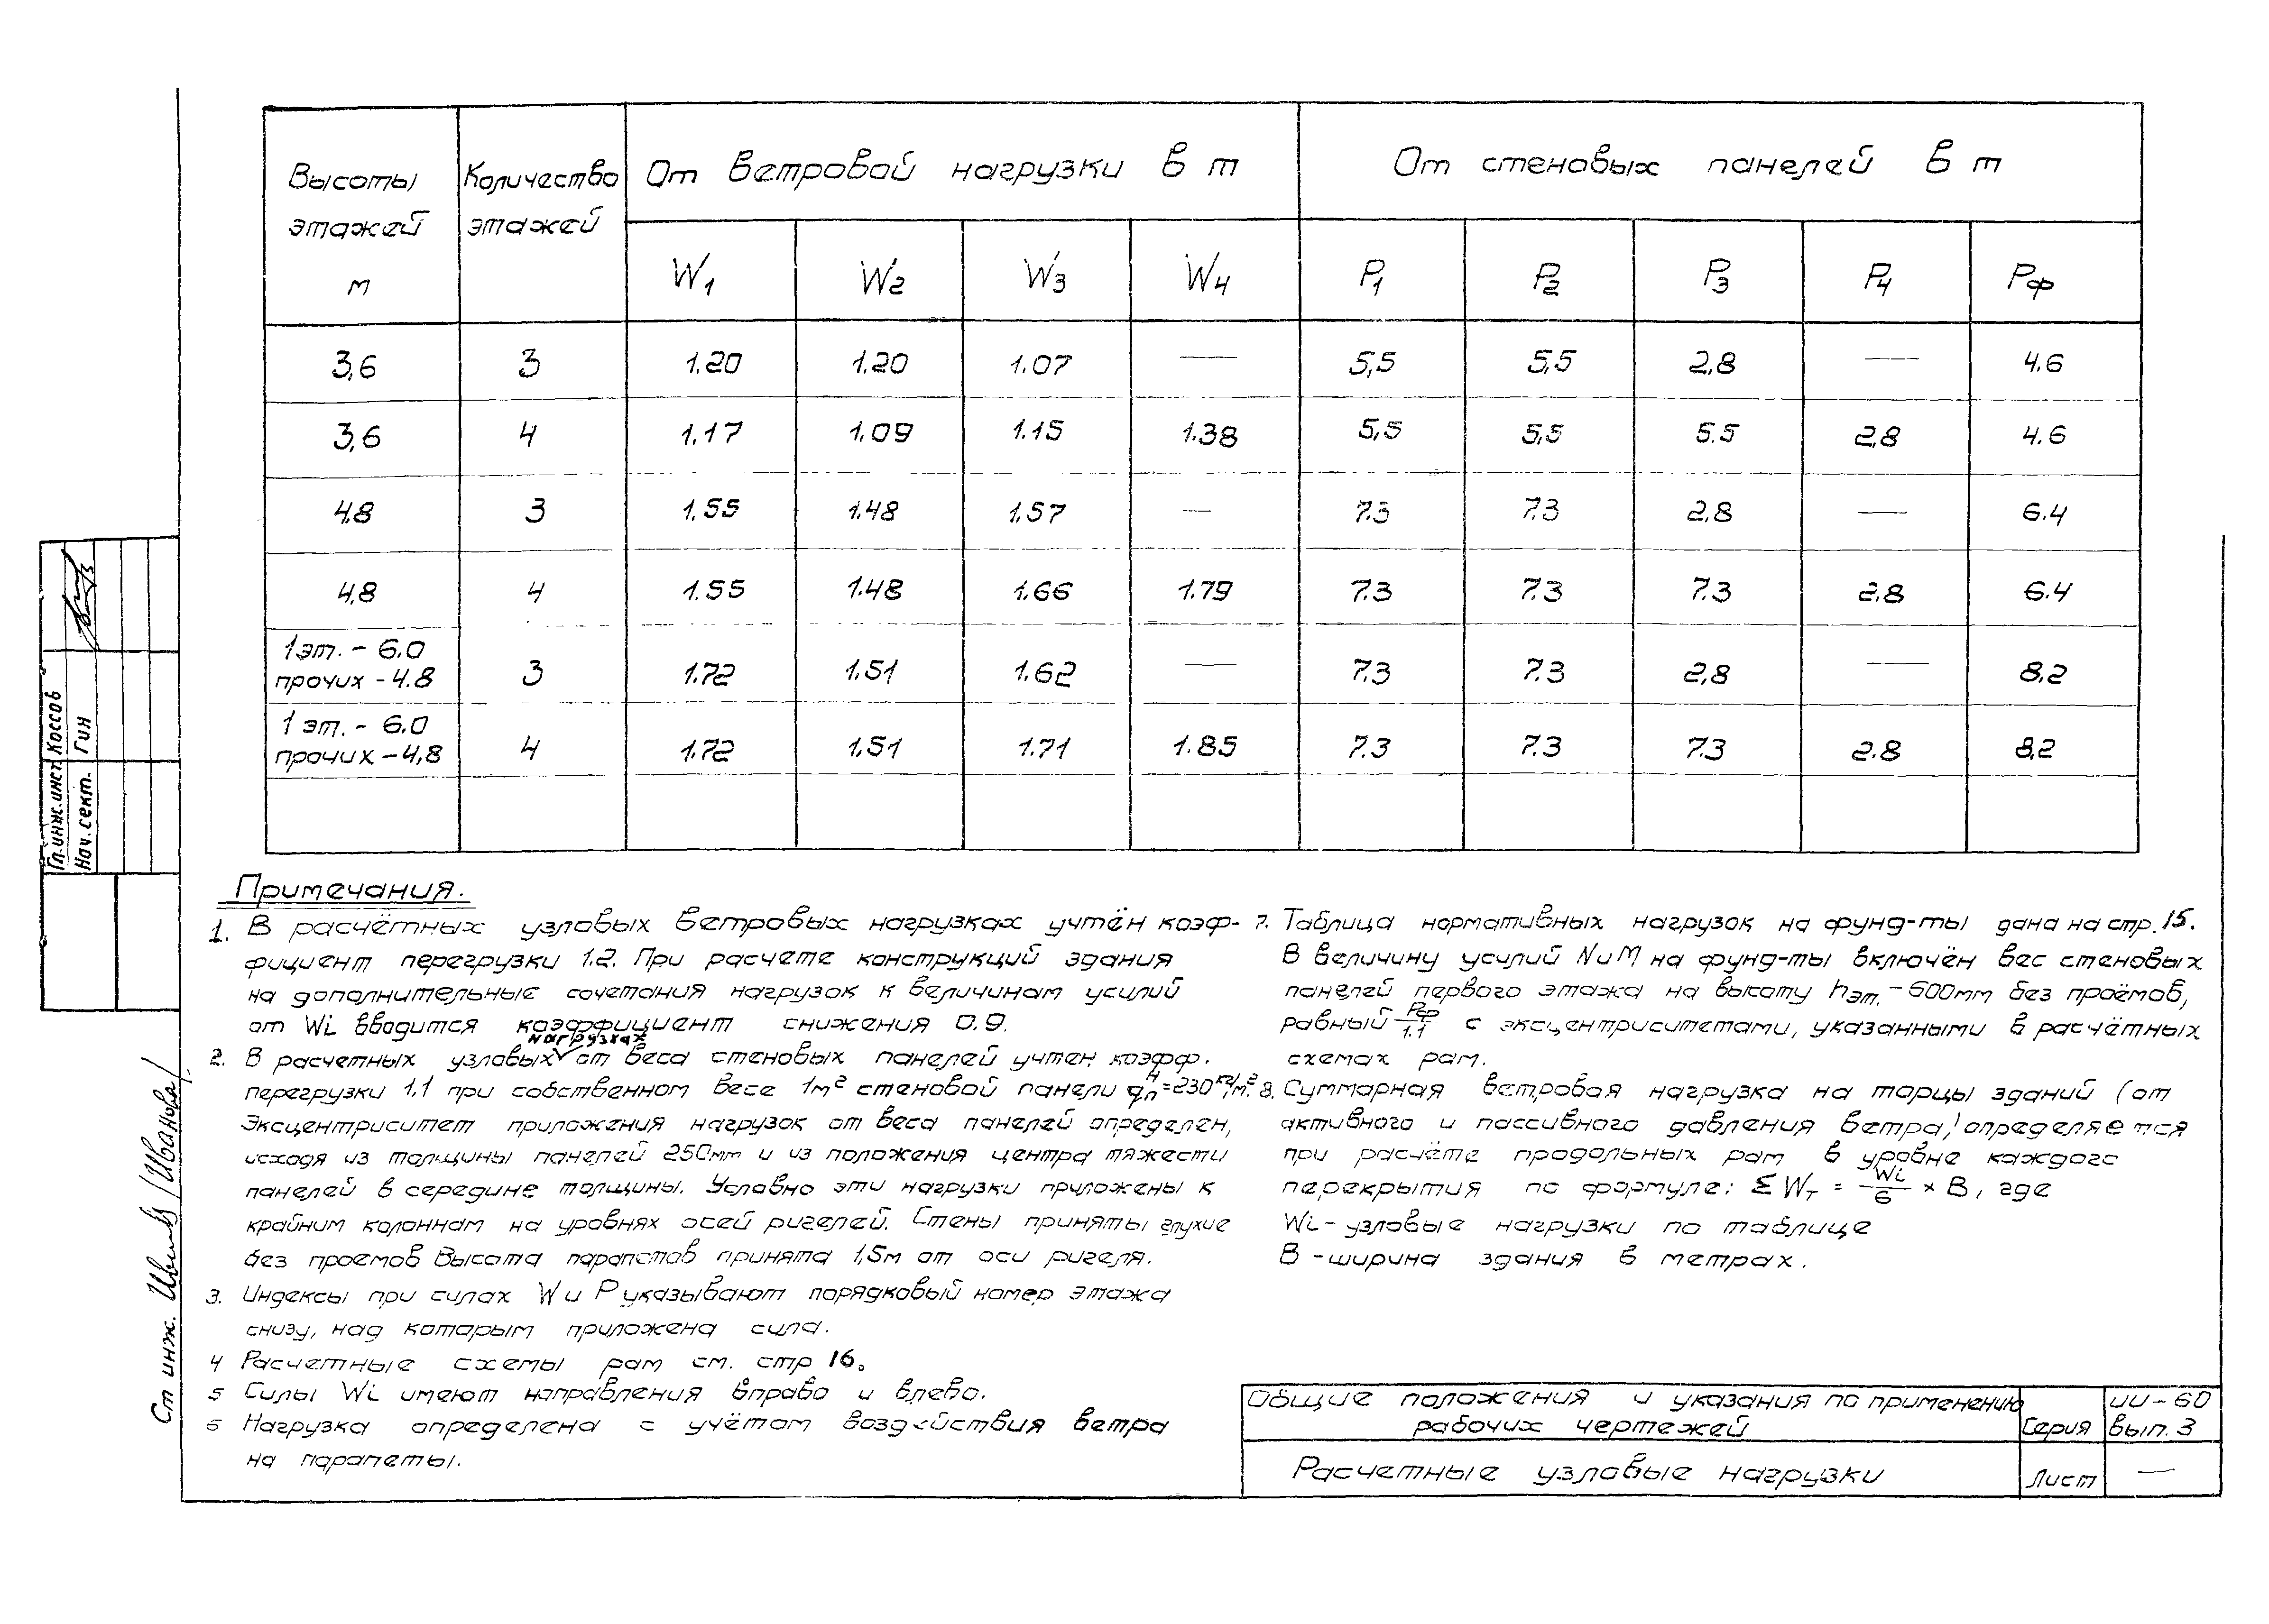 Высоты этажей м | Количество этажей | От ветровой нагрузки в т | От стеновых панелей в т
W1 | W2 | W3 | W4 | P1 | P2 | P3 | P4 | Pф
3,6 | 3 | 1.20 | 1.20 | 1.07 | — | 5,5 | 5,5 | 2,8 | — | 4.6
3,6 | 4 | 1.17 | 1.09 | 1.15 | 1.38 | 5,5 | 5,5 | 5.5 | 2,8 | 4.6
4,8 | 3 | 1.55 | 1.48 | 1,57 | — | 7.3 | 7.3 | 2,8 | — | 6.4
4,8 | 4 | 1.55 | 1.48 | 1.66 | 1.79 | 7.3 | 7.3 | 7.3 | 2.8 | 6.4
1 эт. - 6.0 прочих - 4.8 | 3 | 1.72 | 1.51 | 1.62 | — | 7.3 | 7.3 | 2,8 | — | 8,2
1 эт. - 6.0 прочих - 4,8 | 4 | 1.72 | 1,51 | 1.71 | 1.85 | 7.3 | 7.3 | 7.3 | 2.8 | 8,2
Примечания.
1. В расчётных узловых ветровых нагрузках учтён коэф-
фициент перегрузки 1.2. При расчете конструкций здания
на дополнительные сочетания нагрузок к величинам усилий
от Wi вводится коэффициент снижения 0.9.
2. В расчетных узловых нагрузках от веса стеновых панелей учтен коэфф.
перегрузки 1,1 при собственном весе 1м² стеновой панели qпᴴ=230кг/м².
Эксцентриситет приложения нагрузок от веса панелей определен,
исходя из толщины панелей 250мм и из положения центра тяжести
панелей в середине толщины. Условно эти нагрузки приложены к
крайним колоннам на уровнях осей ригелей. Стены приняты глухие
без проемов Высота парапетов принята 1,5м от оси ригеля.
3. Индексы при силах W и P указывают порядковый номер этажа
снизу, над которым приложена сила.
4 Расчетные схемы рам см. стр 16.
5 Силы Wi имеют направления вправо и влево.
6 Нагрузка определена с учётом воздействия ветра
на парапеты.
7. Таблица нормативных нагрузок на фунд-ты дана на стр. 15.
В величину усилий N и M на фунд-ты включён вес стеновых
панелей первого этажа на высоту hэт. - 600мм без проёмов,
равный Pф/1.1 с эксцентриситетами, указанными в расчётных
схемах рам.
8. Суммарная ветровая нагрузка на торцы зданий (от
активного и пассивного давления ветра) определяется
при расчёте продольных рам в уровне каждого
перекрытия по формуле: ΣWт = Wi/6 × B, где
Wi - узловые нагрузки по таблице
B - ширина здания в метрах.
Общие положения и указания по применению
рабочих чертежей
Серия
ИИ-60
вып. 3
Расчетные узловые нагрузки
Лист
—
Гл. инж. инст. Коссов
Нач. сект. Гин
Ст инж. /Иванова/